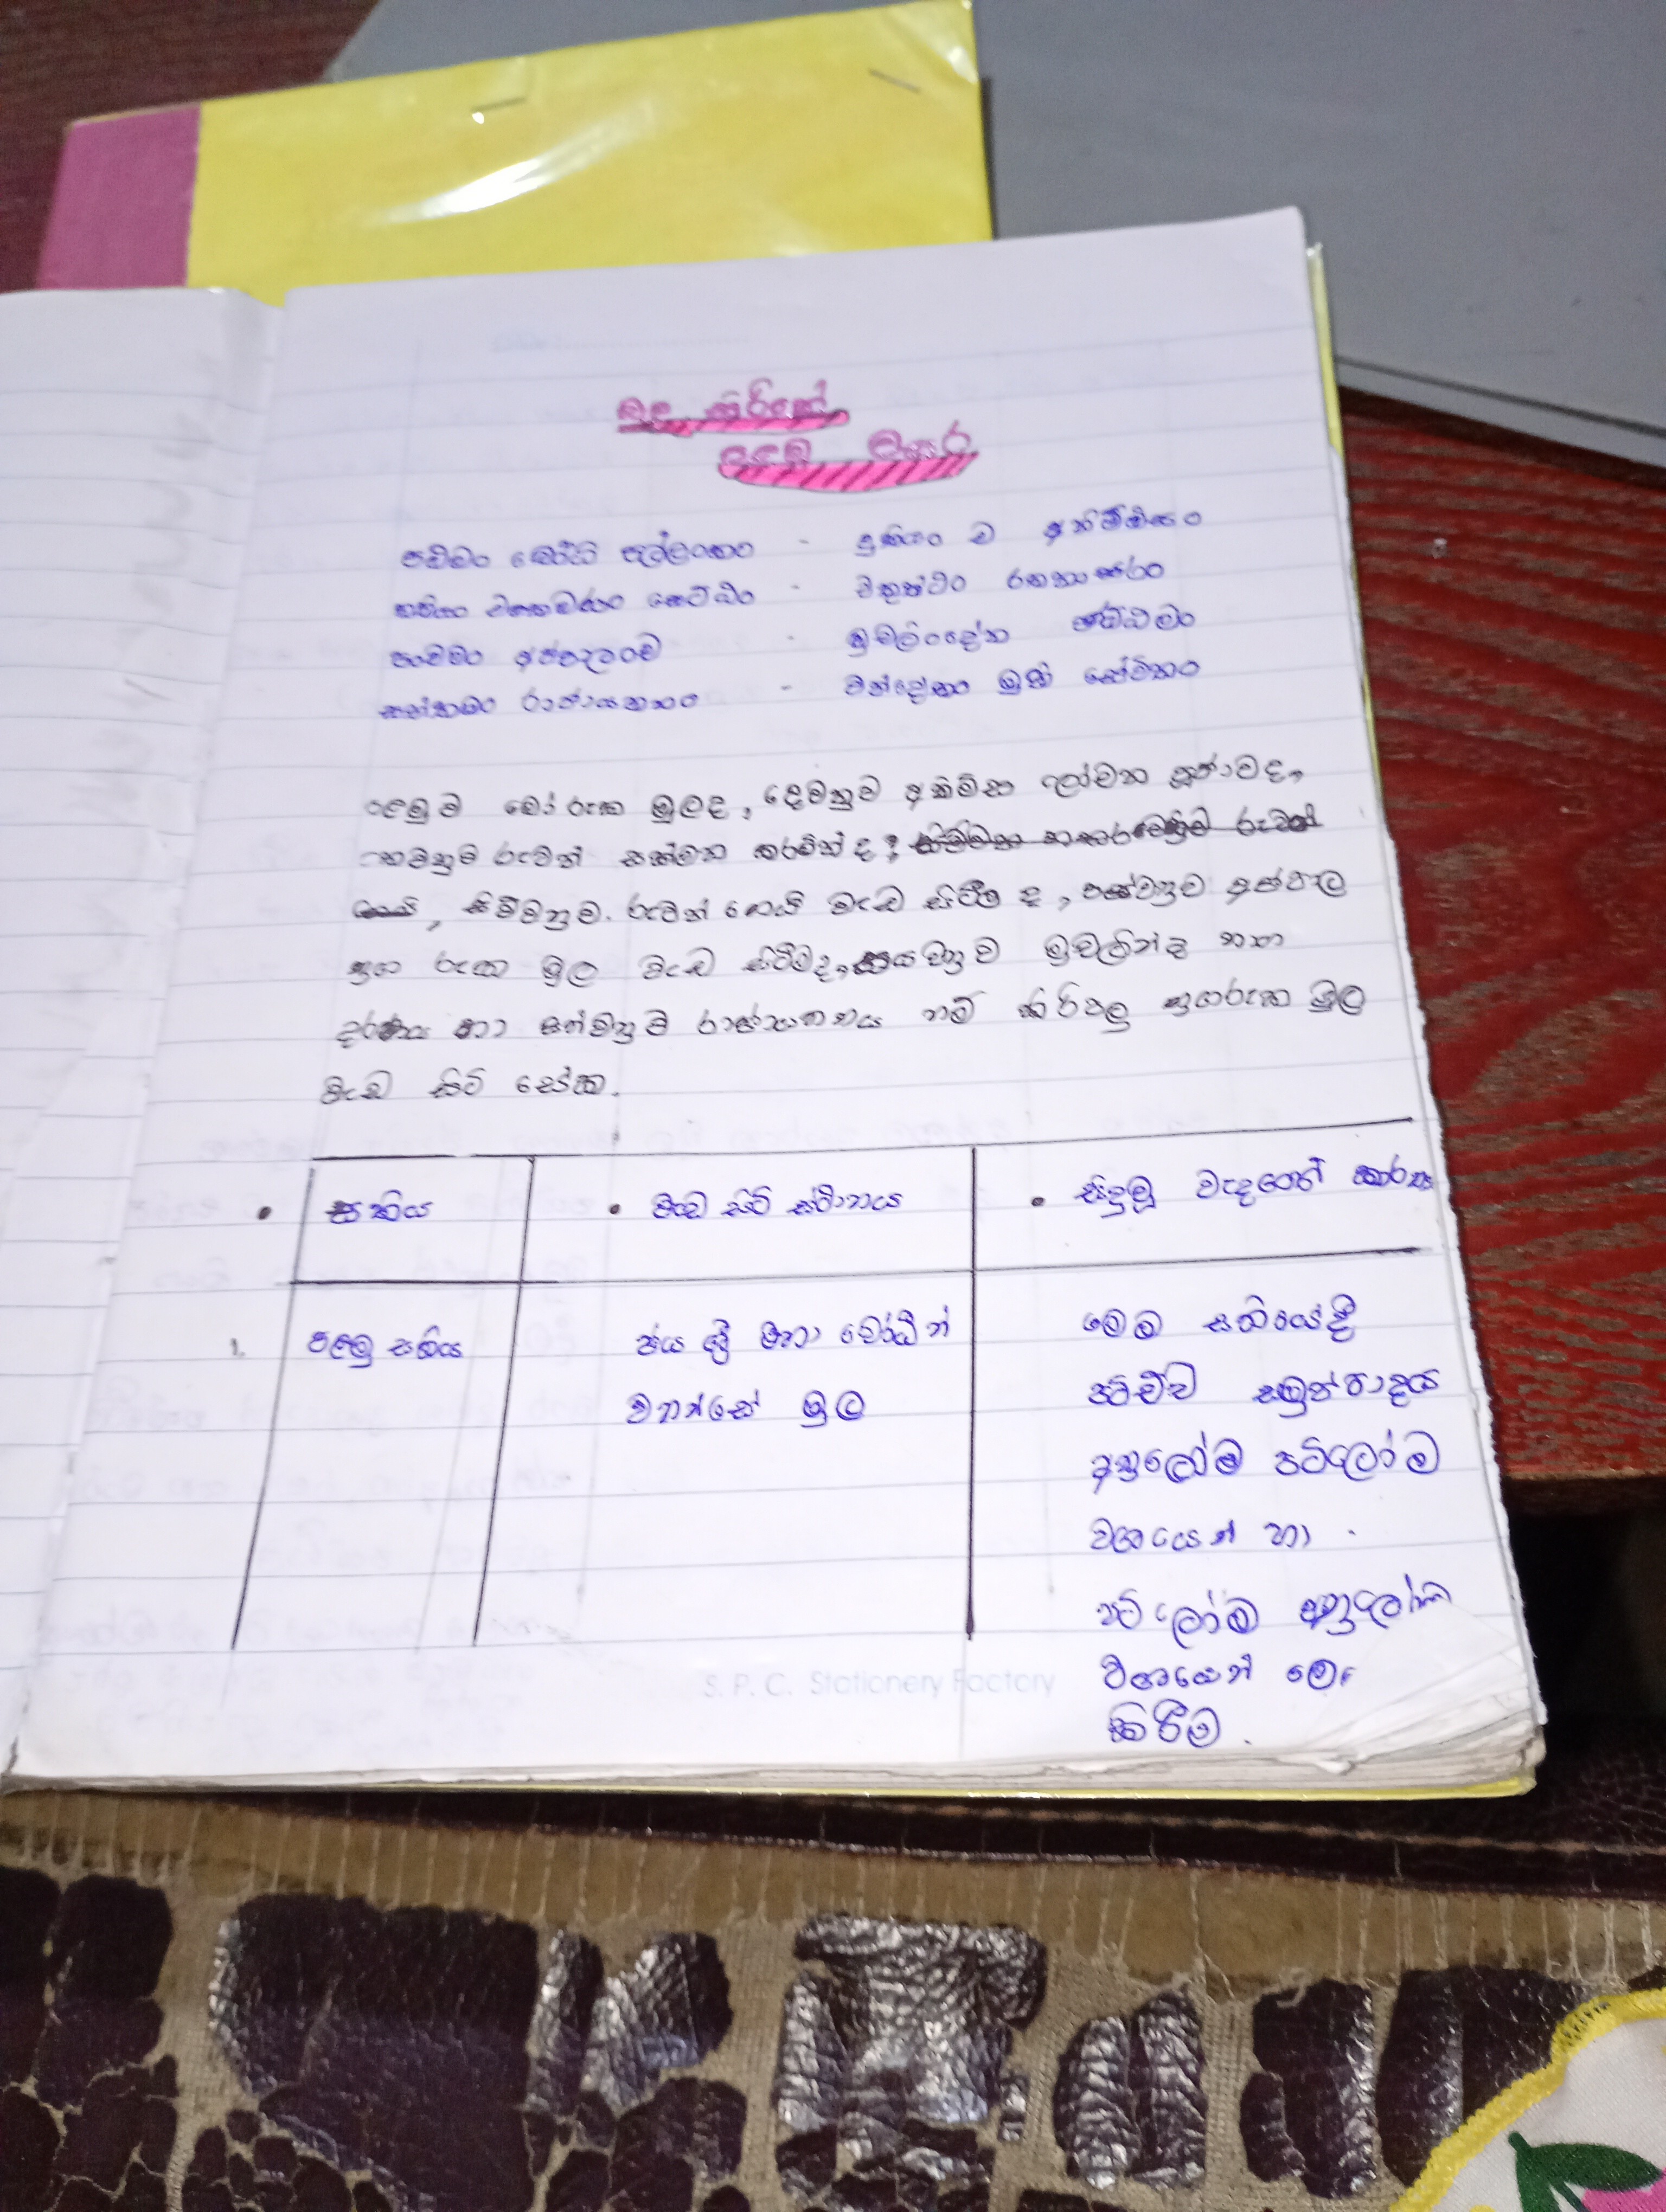 බුදු සිරිතේ
පළමු වසර
පඨමං බෝධි පල්ලංකං - දුතියං ච අනිම්මිසං
තතියං චංකමණං සෙට්ඨං - චතුත්ථං රතනාඝරං
පංචමං අජපාලංච - මුචලින්දේන ඡට්ඨමං
සත්තමං රාජායතනං - වන්දේතං මුනි සේවිතං
පළමුව බෝ රුක මුලද, දෙවනුව අනිමිස ලෝචන පූජාවද,
තෙවනුව රුවන් සක්මන කරමින් ද,
සිව්වනුව රුවන් ගෙයි වැඩ සිටීම ද, පස්වනුව අජපාල
නුග රුක මුල වැඩ සිටීමද, සයවනුව මුචලින්ද නාග
දරණය හා සත්වනුව රාජායතනය නම් කිරිපලු නුගරුක මුල
වැඩ සිටි සේක.
• සතිය • වැඩ සිටි ස්ථානය • සිදුවූ වැදගත්
1. පළමු සතිය ජය ශ්‍රී මහා බෝධීන් මෙම සතියේදී
වහන්සේ මුල පටිච්ච සමුප්පාදය
අනුලෝම පටිලෝම
වශයෙන් හා
පටිලෝම අනුලෝම
වශයෙන්
කිරීම.
S. P. C. Stationery Factory